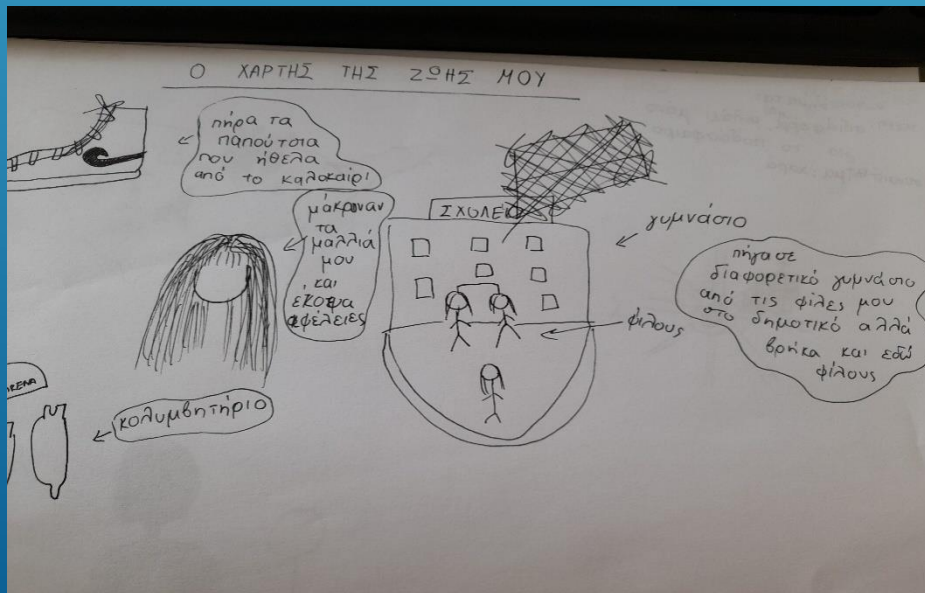 Ο ΧΑΡΤΗΣ ΤΗΣ ΖΩΗΣ ΜΟΥ
πήρα τα
παπούτσια
που ήθελα
από το καλοκαίρι
μάκρυναν
τα
μαλλιά
μου
και
έκοψα
αφέλειες
ΣΧΟΛΕΙ
γυμνάσιο
πήγα σε
διαφορετικό γυμνάσιο
από τις φίλες μου
στο δημοτικό αλλά
βρήκα και εδώ
φίλους
φίλους
κολυμβητήριο